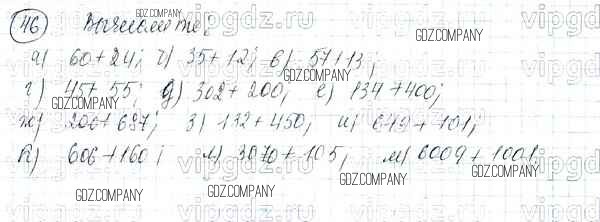 46 Вычислите:
а) 60+24; б) 35+12; в) 57+13;
г) 45+55; д) 302+200; е) 134+400;
ж) 206+687; з) 132+450; и) 649+101;
к) 606+160; л) 3070+105; м) 6009+1001;
GDZ.COMPANY
vipgdz.ru